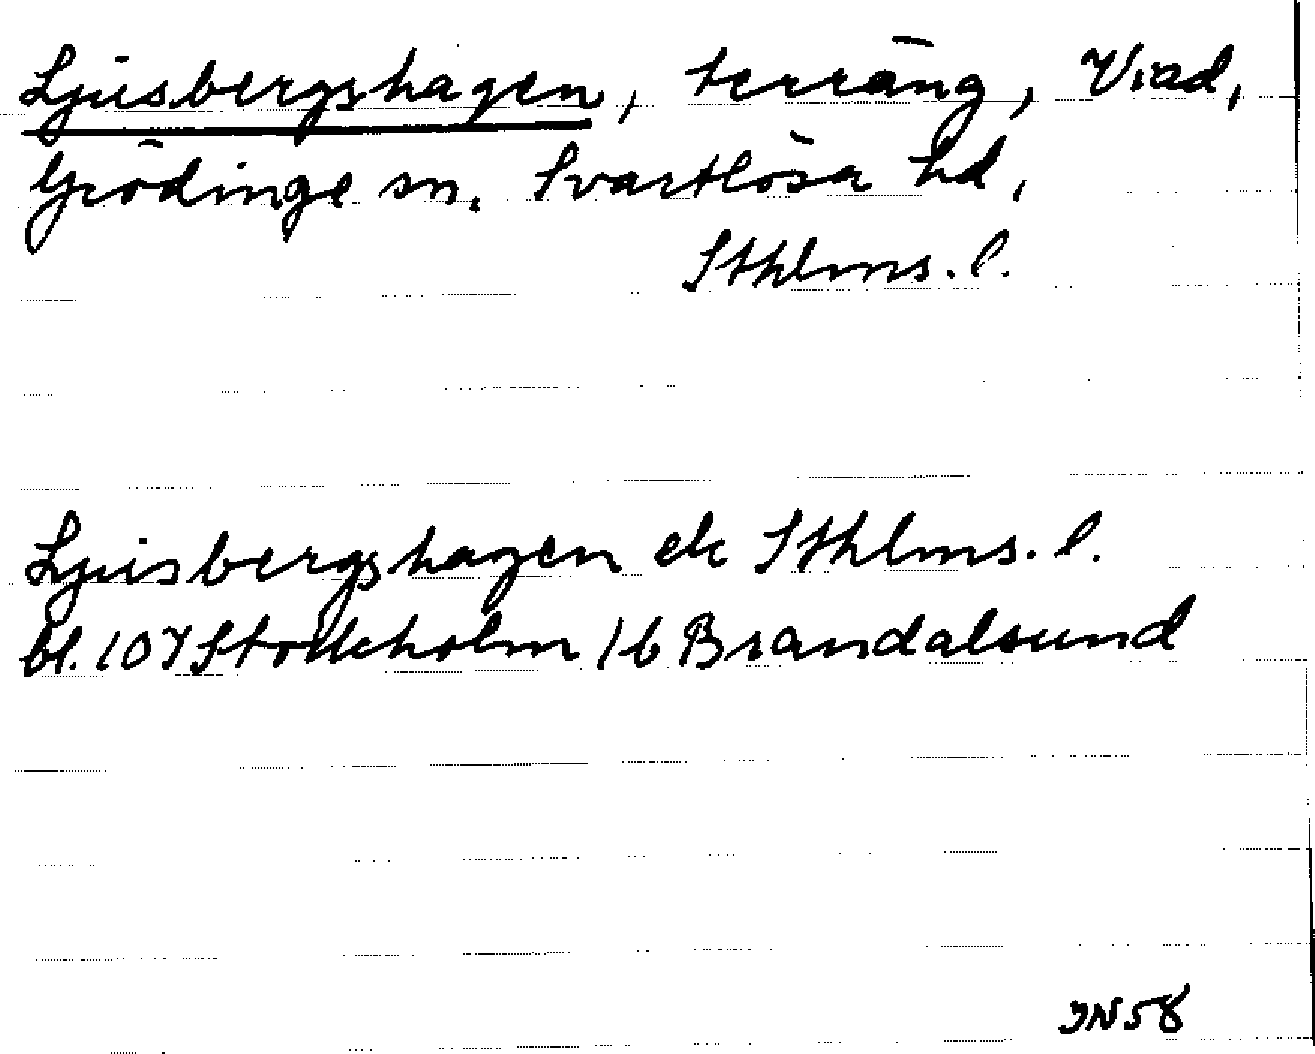 Ljusbergshagen, terräng, Viad,
Grödinge sn. Svartlösa hd,
Sthlms. l.
Ljusbergshagen ek Sthlms. l.
bl. 107 Stockholm 1b Brandalsund
JN58